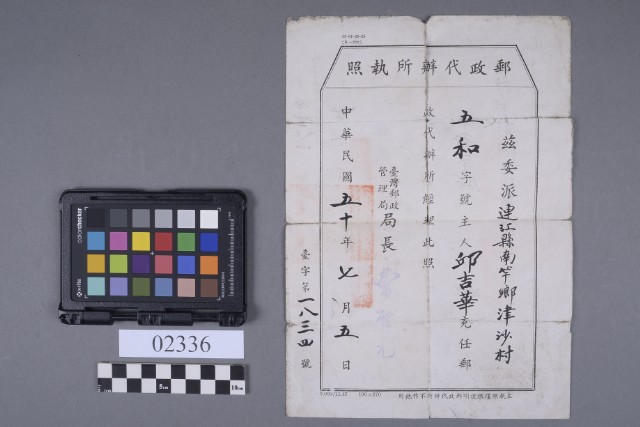 郵政代辦所執照
茲委派連江縣南竿鄉津沙村
五和字號主人邱吉華充任郵
政代辦所經理此照
臺灣郵政
管理局
局長
中華民國五十年七月五日
臺字第一八三四號
colorchecker
x-rite
02336
5cm
10cm